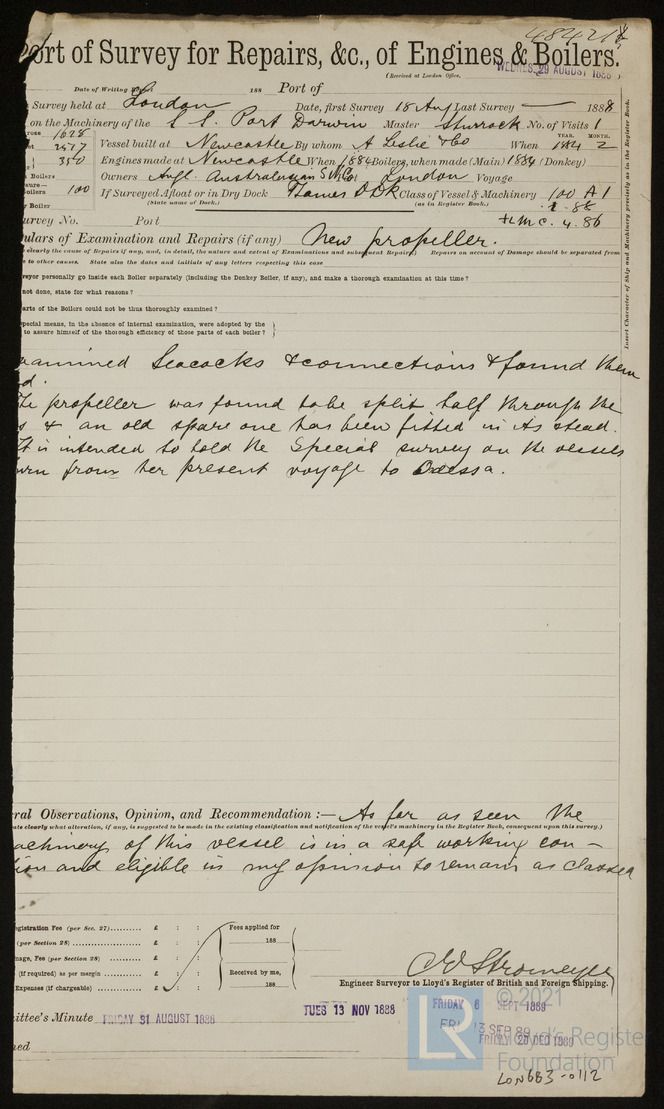 48421
ort of Survey for Repairs, &c., of Engines & Boilers.
(Received at London Office, WEDNES. 29 AUGUST 1888)
Date of Writing 188 Port of
Survey held at London Date, first Survey 18 Aug Last Survey — 1888
on the Machinery of the S.S. Port Darwin Master Sturrock No. of Visits 1
ross 1628
YEAR. MONTH.
2577 Vessel built at Newcastle By whom A Leslie & Co When 1884 2
350 Engines made at Newcastle When 1884 Boilers, when made (Main) 1884 (Donkey)
Boilers Owners Angl. Australasian S N Co. London Voyage
oilers 100 If Surveyed Afloat or in Dry Dock Thames D Dk Class of Vessel & Machinery 100 A1
(State name of Dock.) (as in Register Book.)
Boiler
urvey No. Port LMC. 4.86
ulars of Examination and Repairs (if any) New propeller.
clearly the cause of Repairs if any, and, in detail, the nature and extent of Examinations and subsequent Repairs.) Repairs on account of Damage should be separated from
e to other causes. State also the dates and initials of any letters respecting this case
Insert Character of Ship and Machinery precisely as in the Register Book.
veyor personally go inside each Boiler separately (including the Donkey Boiler, if any), and make a thorough examination at this time?
not done, state for what reasons?
arts of the Boilers could not be thus thoroughly examined?
special means, in the absence of internal examination, were adopted by the
to assure himself of the thorough efficiency of those parts of each boiler?
xamined Seacocks & connections & found them
d.
he propeller was found to be split half through the
s & an old spare one has been fitted in its stead.
It is intended to hold the Special survey on the vessels
urn from her present voyage to Odessa.
ral Observations, Opinion, and Recommendation :— As far as seen the
ate clearly what alteration, if any, is suggested to be made in the existing classification and notification of the vessel's machinery in the Register Book, consequent upon this survey.)
achinery of this vessel is in a safe working con -
tion and eligible in my opinion to remain as classed
egistration Fee (per Sec. 27) £ : : Fees applied for
(per Section 28) £ : : 188
mage, Fee (per Section 28) £ : :
(if required) as per margin £ : : Received by me,
Expenses (if chargeable) £ : : 188
C E Stromeyer
Engineer Surveyor to Lloyd's Register of British and Foreign Shipping.
ittee's Minute FRIDAY 31 AUGUST 1888 TUES 13 NOV 1888 FRIDAY 6 SEPT 1889
FRI 13 SEP 89
FRIDAY 20 DEC 1889
ned
LR
© 2021
Lloyd's Register
Foundation
LON683-0112